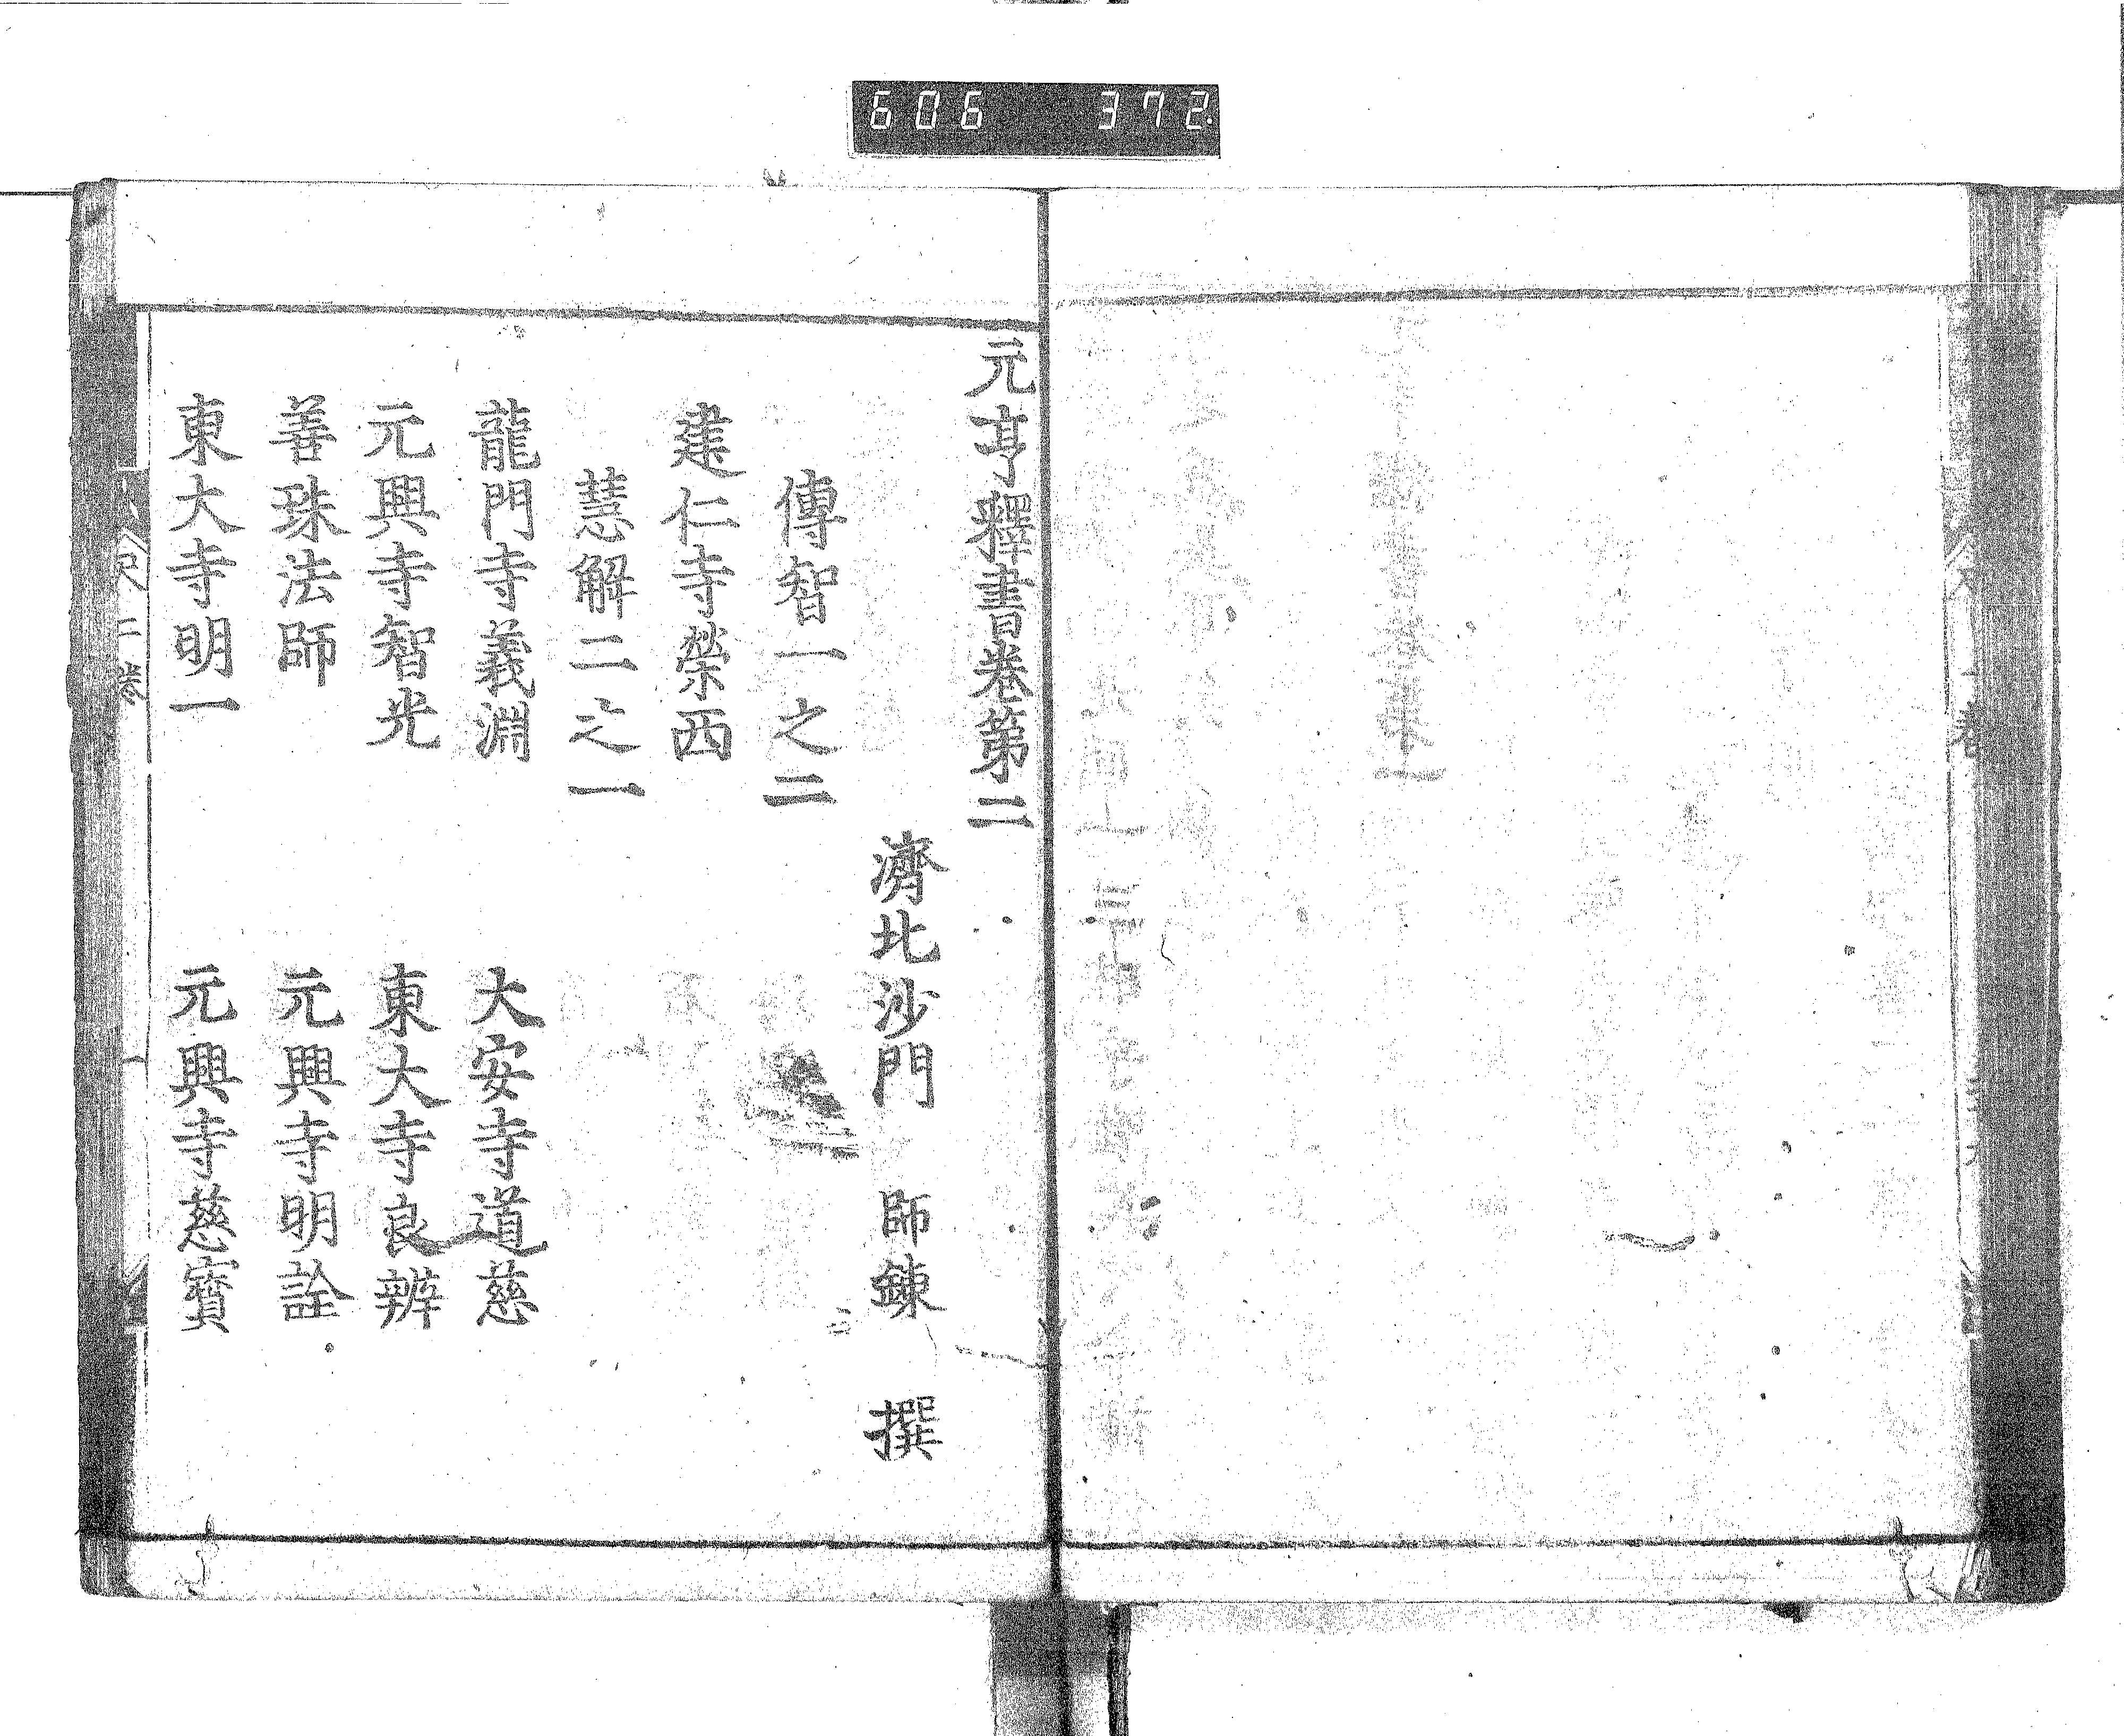 606 372.
元亨釋書卷第二
濟北沙門 師鍊 撰
傳智一之二
建仁寺榮西
慧解二之一
龍門寺義淵 大安寺道慈
元興寺智光 東大寺良辨
善珠法師 元興寺明詮
東大寺明一 元興寺慈寶
二卷